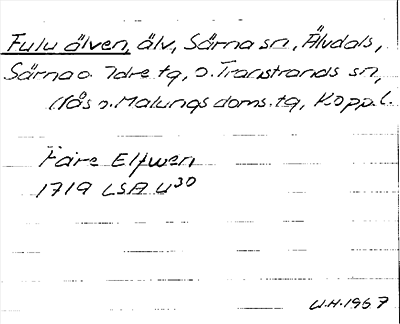 Fulu älven, älv, Särna sn, Älvdals,
Särna o. Idre tg, o. Transtrands sn,
Nås o. Malungs doms. tg, Kopp. l.
Faire Elfwen
1719 LSA U30
W.H. 1967